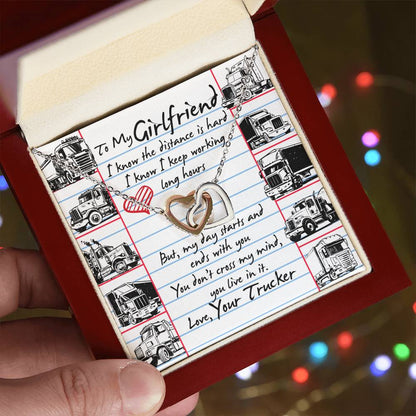 To My Girlfriend
I know the distance is hard
I know I keep working
long hours
But, my day starts and
ends with you
You don't cross my mind,
you live in it.
Love, Your Trucker